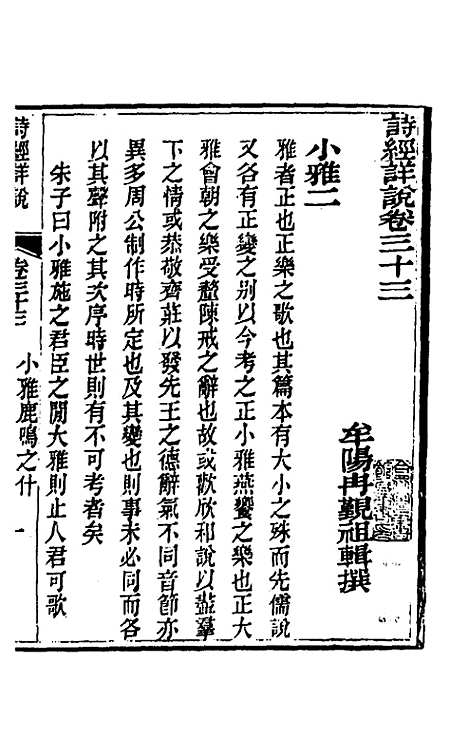 詩經詳說卷三十三
牟陽冉覲祖輯撰
小雅二
雅者正也正樂之歌也其篇本有大小之殊而先儒說
又各有正變之別以今考之正小雅燕饗之樂也正大
雅會朝之樂受釐陳戒之辭也故或歡欣和說以盡羣
下之情或恭敬齊莊以發先王之德辭氣不同音節亦
異多周公制作時所定也及其變也則事未必同而各
以其聲附之其次序時世則有不可考者矣
朱子曰小雅施之君臣之閒大雅則止人君可歌
詩經詳說
卷三十三
小雅鹿鳴之什
一